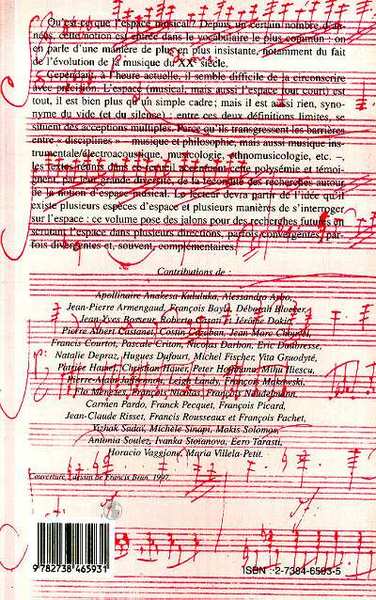 Qu'est-ce que l'espace musical ? Depuis, un certain nombre d'an-
nées, cette notion est entrée dans le vocabulaire le plus commun : on
en parle d'une manière de plus en plus insistante, notamment du fait
de l'évolution de la musique du XXe siècle.
Cependant, à l'heure actuelle, il semble difficile de la circonscrire
avec précision. L'espace (musical, mais aussi l'espace tout court) est
tout, il est bien plus qu'un simple cadre; mais il est aussi rien, syno-
nyme du vide (et du silence) : entre ces deux définitions limites, se
situent des acceptions multiples. Parce qu'ils transgressent les barrières
entre « disciplines » – musique et philosophie, mais aussi musique ins-
trumentale/électroacoustique, musicologie, ethnomusicologie, etc. –,
les textes réunis dans ce recueil accentuent cette polysémie et témoi-
gnent par leur grande diversité de la fécondité des recherches autour
de la notion d'espace musical. Le lecteur devra partir de l'idée qu'il
existe plusieurs espèces d'espace et plusieurs manières de s'interroger
sur l'espace : ce volume pose des jalons pour des recherches futures en
scrutant l'espace dans plusieurs directions, parfois convergentes, par-
fois divergentes et, souvent, complémentaires.
Contributions de :
Apollinaire Anakesa Kululuka, Alessandro Arbo,
Jean-Pierre Armengaud, François Bayle, Déborah Blocker,
Jean-Yves Bosseur, Roberto Casati et Jérôme Dokic,
Pierre Albert Castanet, Costin Cazaban, Jean-Marc Chouvel,
Francis Courtot, Pascale Criton, Nicolas Darbon, Eric Daubresse,
Natalie Depraz, Hugues Dufourt, Michel Fischer, Vita Gruodyté,
Patrice Hamel, Christian Hauer, Peter Hoffmann, Mihu Iliescu,
Pierre-Alain Jaffrennou, Leigh Landy, François Makowski,
Flo Menezes, François Nicolas, François Noudelmann,
Carmen Pardo, Franck Pecquet, François Picard,
Jean-Claude Risset, Francis Rousseaux et François Pachet,
Yizhak Sadaï, Michèle Sinapi, Makis Solomos
Antonia Soulez, Ivanka Stoïanova, Eero Tarasti,
Horacio Vaggione, Maria Villela-Petit.
Couverture : dessin de Francis Brun, 1997.
9 782738 465931
ISBN : 2-7384-6593-5